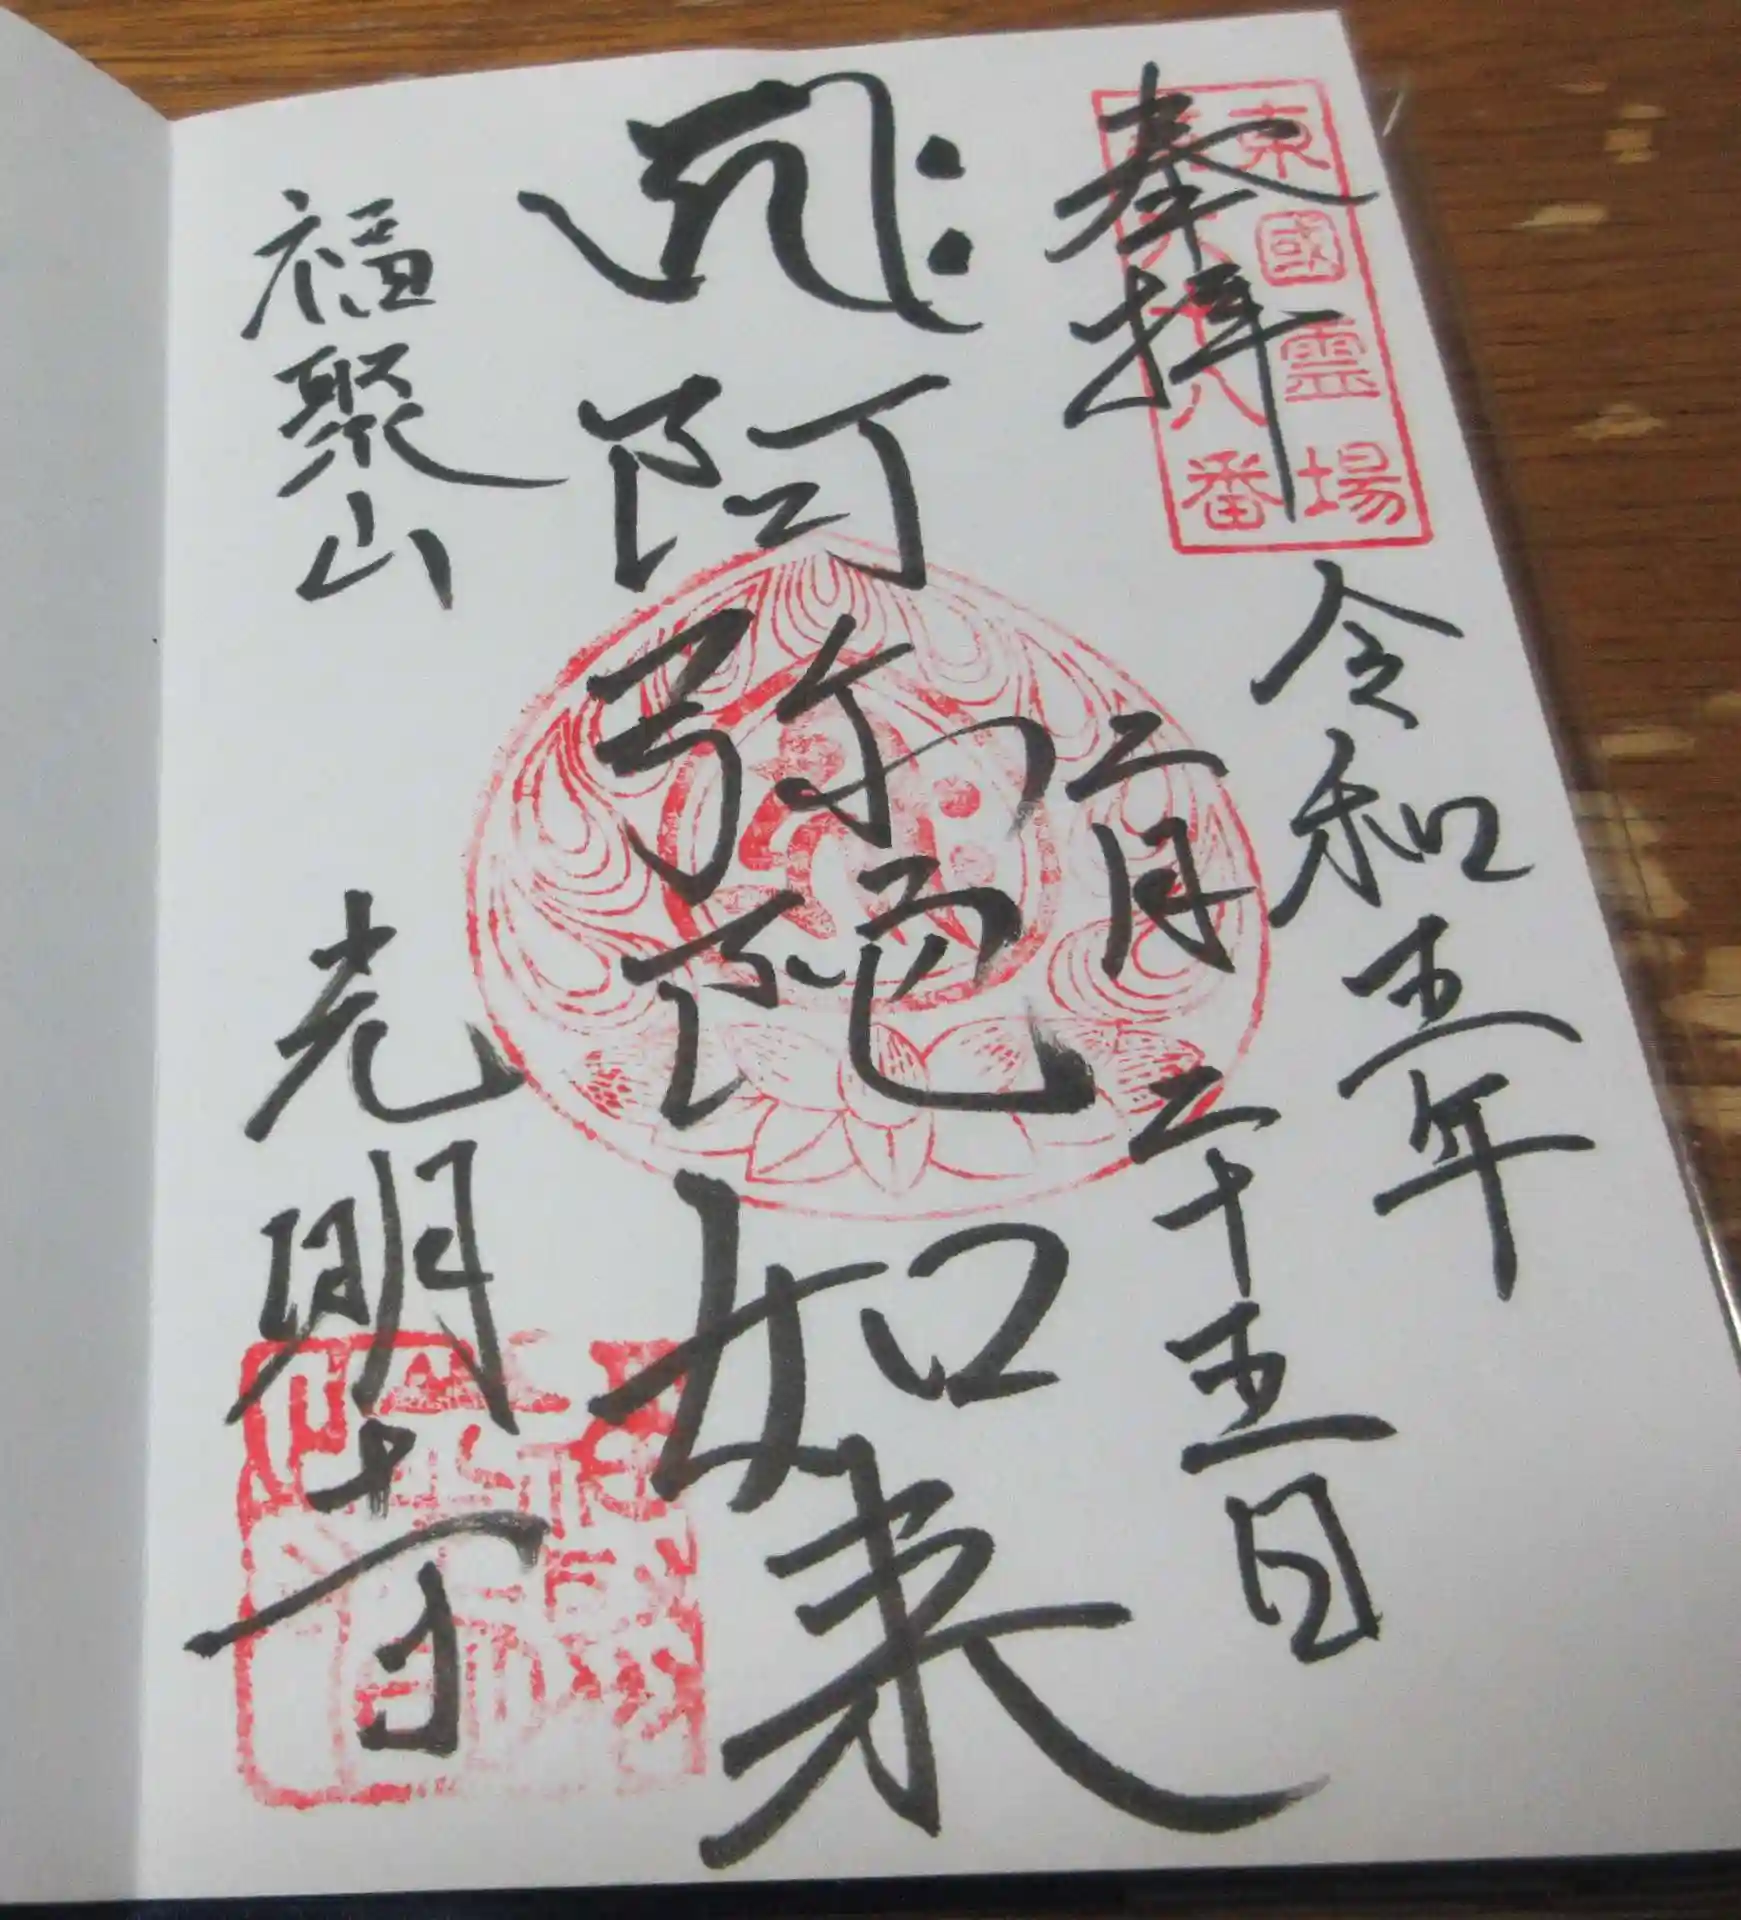 東國霊場
八番
奉拝
令和五年
二月二十五日
阿弥陀如来
福聚山
光明寺